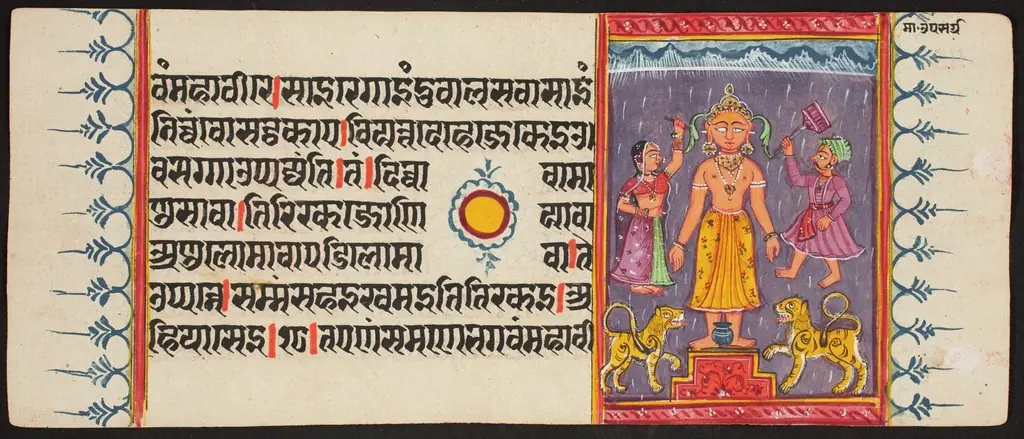 मा·उपसर्ग
वंमहावीरे।साइरेगाइंदुवालसवासाइं
निच्चंवोसट्ठकाए।चियत्तदेहेजेकेइउ
वसग्गाउप्पज्जंति।तं।दिव्वा वामा
णुसावा।तिरिरकजोणि यावा
अणुलोमावापडिलोमा वा।ते
उप्पन्ने।सम्मंसहइखमइतितिरकइ।अ
हियासेइ। ।तएणंसमणेभगवंमहावी